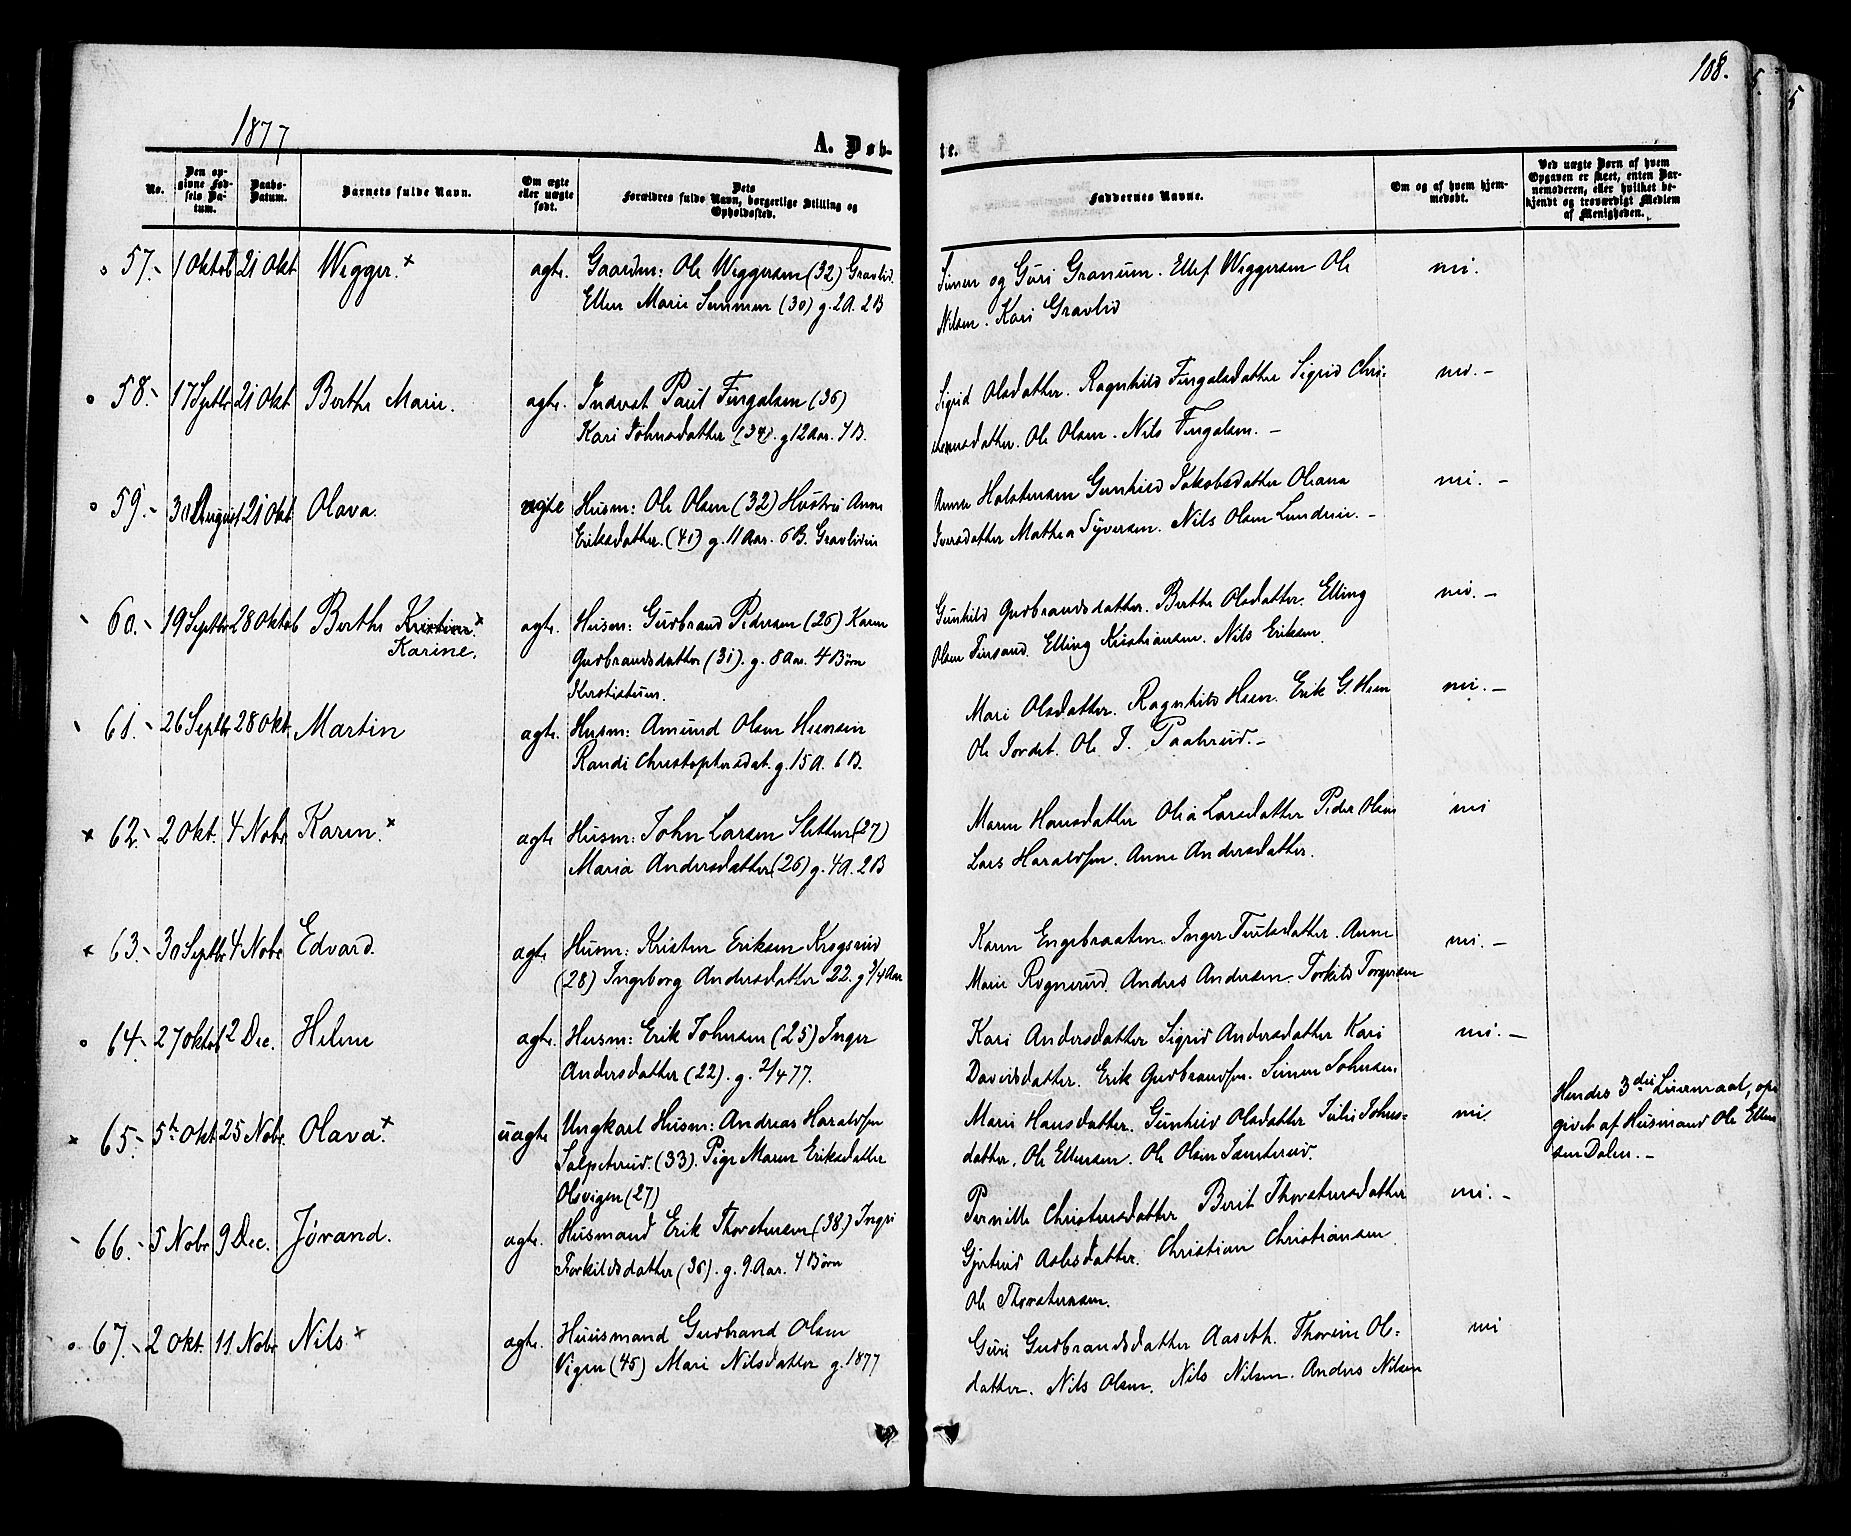 108.
1877
A. Døb-
te.
No.
Den op-
givne Fød-
sels Da-
tum.
Daabs-
Datum.
Barnets fulde Navn.
Om ægte
eller uægte
født.
Dets
Forældres fulde Navn, borgerlige Stilling og
Opholdssted.
Faddernes Navne.
Om og af hvem hjem-
medøbt.
Ved uægte Børn af hvem
Opgaven er skeet, enten Bar-
nemoderen, eller hvilket be-
kjendt og troværdigt Medlem
af Menigheden.
57. 1 Oktob 21 Okt Wegger. ægte. Gaardm: Ole Weggersen (32) Gravlid.
Ellen Marie Simmen (30) g. 2A. 2B
Simen og Guri Granum. Ellef Weggersen Ole
Nilsen. Kari Gravlid
mi.
58. 17 Septbr 21 Okt Berthe Marie. ægte. Indvst Paul Fingalsen (36)
Kari Johnsdatter (34). g 12 Aar. 7 B.
Sigrid Olsdatter. Ragnhild Fingalsdatter Sigrid Chri-
stensdatter. Ole Olsen. Nils Fingalsen. —
mi. —
59. 30 August 21 Okt. Olava. ægte Husm: Ole Olsen (32) Hustru Anne
Eriksdatter. (41) g. 11 Aar. 6 B. Gravlideie
Anne Holstensen Gunhild Jakobsdatter Oleana
Iversdatter Mathea Syversen. Nils Olsen Lundeie. —
mi. —
60. 19 Septbr 28 Oktob Berthe Kristine.
Karine.
ægte. Husm: Gudbrand Pedersen (26) Karen
Gudbrandsdatter (31). g. 8 Aar. 4 Børn
Gunhild Gudbrandsdatter. Berthe Olsdatter. Elling
Olsen Finsand. Elling Kristiansen. Nils Eriksen.
mi. —
61. 26 Septbr 28 Okt. Martin ægte. Husm: Amund Olsen Heenseie
Randi Christophersdat. g. 15 A. 6 B.
Mari Olsdatter. Ragnhild Heen. Erik G. Heen
Ole Jordet. Ole J. Paahrud. —
mi. —
62. 2 Okt. 4 Nobr Karen. ægte Husm: John Larsen Sletten (27)
Maria Andersdatter (26) g. 4A. 2B
Maren Hansdatter Olia Larsdatter Peder Olsen
Lars Haraldsen. Anne Andersdatter.
mi
63. 30 Septbr 4 Nobr Edvard. ægte. Husm: Kristen Eriksen Krogsrud
(28) Ingeborg Andersdatter 22. g 3/4 Aar
Karen Engebraaten. Inger Truulsdatter. Anne
Marie Rognerud. Anders Andersen. Torkild Torgersen
mi. —
64. 27 Oktob 2 Dec. Helene ægte. Husm: Erik Johnsen (25) Inger
Andersdatter (22). g. 2/4 77.
Kari Andersdatter Sigrid Andersdatter Kari
Davidsdatter. Erik Gudbrandsen. Simen Johnsen.
mi. —
65. 5te Okt 25 Nobr. Olava. uægte Ungkarl Husm: Andreas Haraldsen
Salpeterud. (33). Pige Maren Eriksdatter
Olsvigen (27)
Mari Hansdatter. Gunhild Olsdatter Julie Johns-
datter. Ole Ellensen. Ole Olsen Sanderud.
mi.
Hendes 3die Leiermaal, op-
givet af Husmand Ole Ellen-
sen Dalen. —
66. 5 Nobr 9 Dec. Jørand. ægte. Husmand Erik Thorstensen (38) Ingri
Torkildsdatter (36). g. 9. Aar. 4 Børn
Pernille Christensdatter Berit Thorstensdatter
Gjertrud Aslesdatter. Christian Christiansen
Ole Thorstensen.
mi. —
67. 2 Okt. 11 Nobr Nils ægte. Huusmand Gudbrand Olsen
Vigen (45) Mari Nilsdatter g. 1877
Guri Gudbrandsdatter Aaseth. Thorine Ols-
datter. Nils Olsen. Nils Nilsen. Anders Nilsen
mi